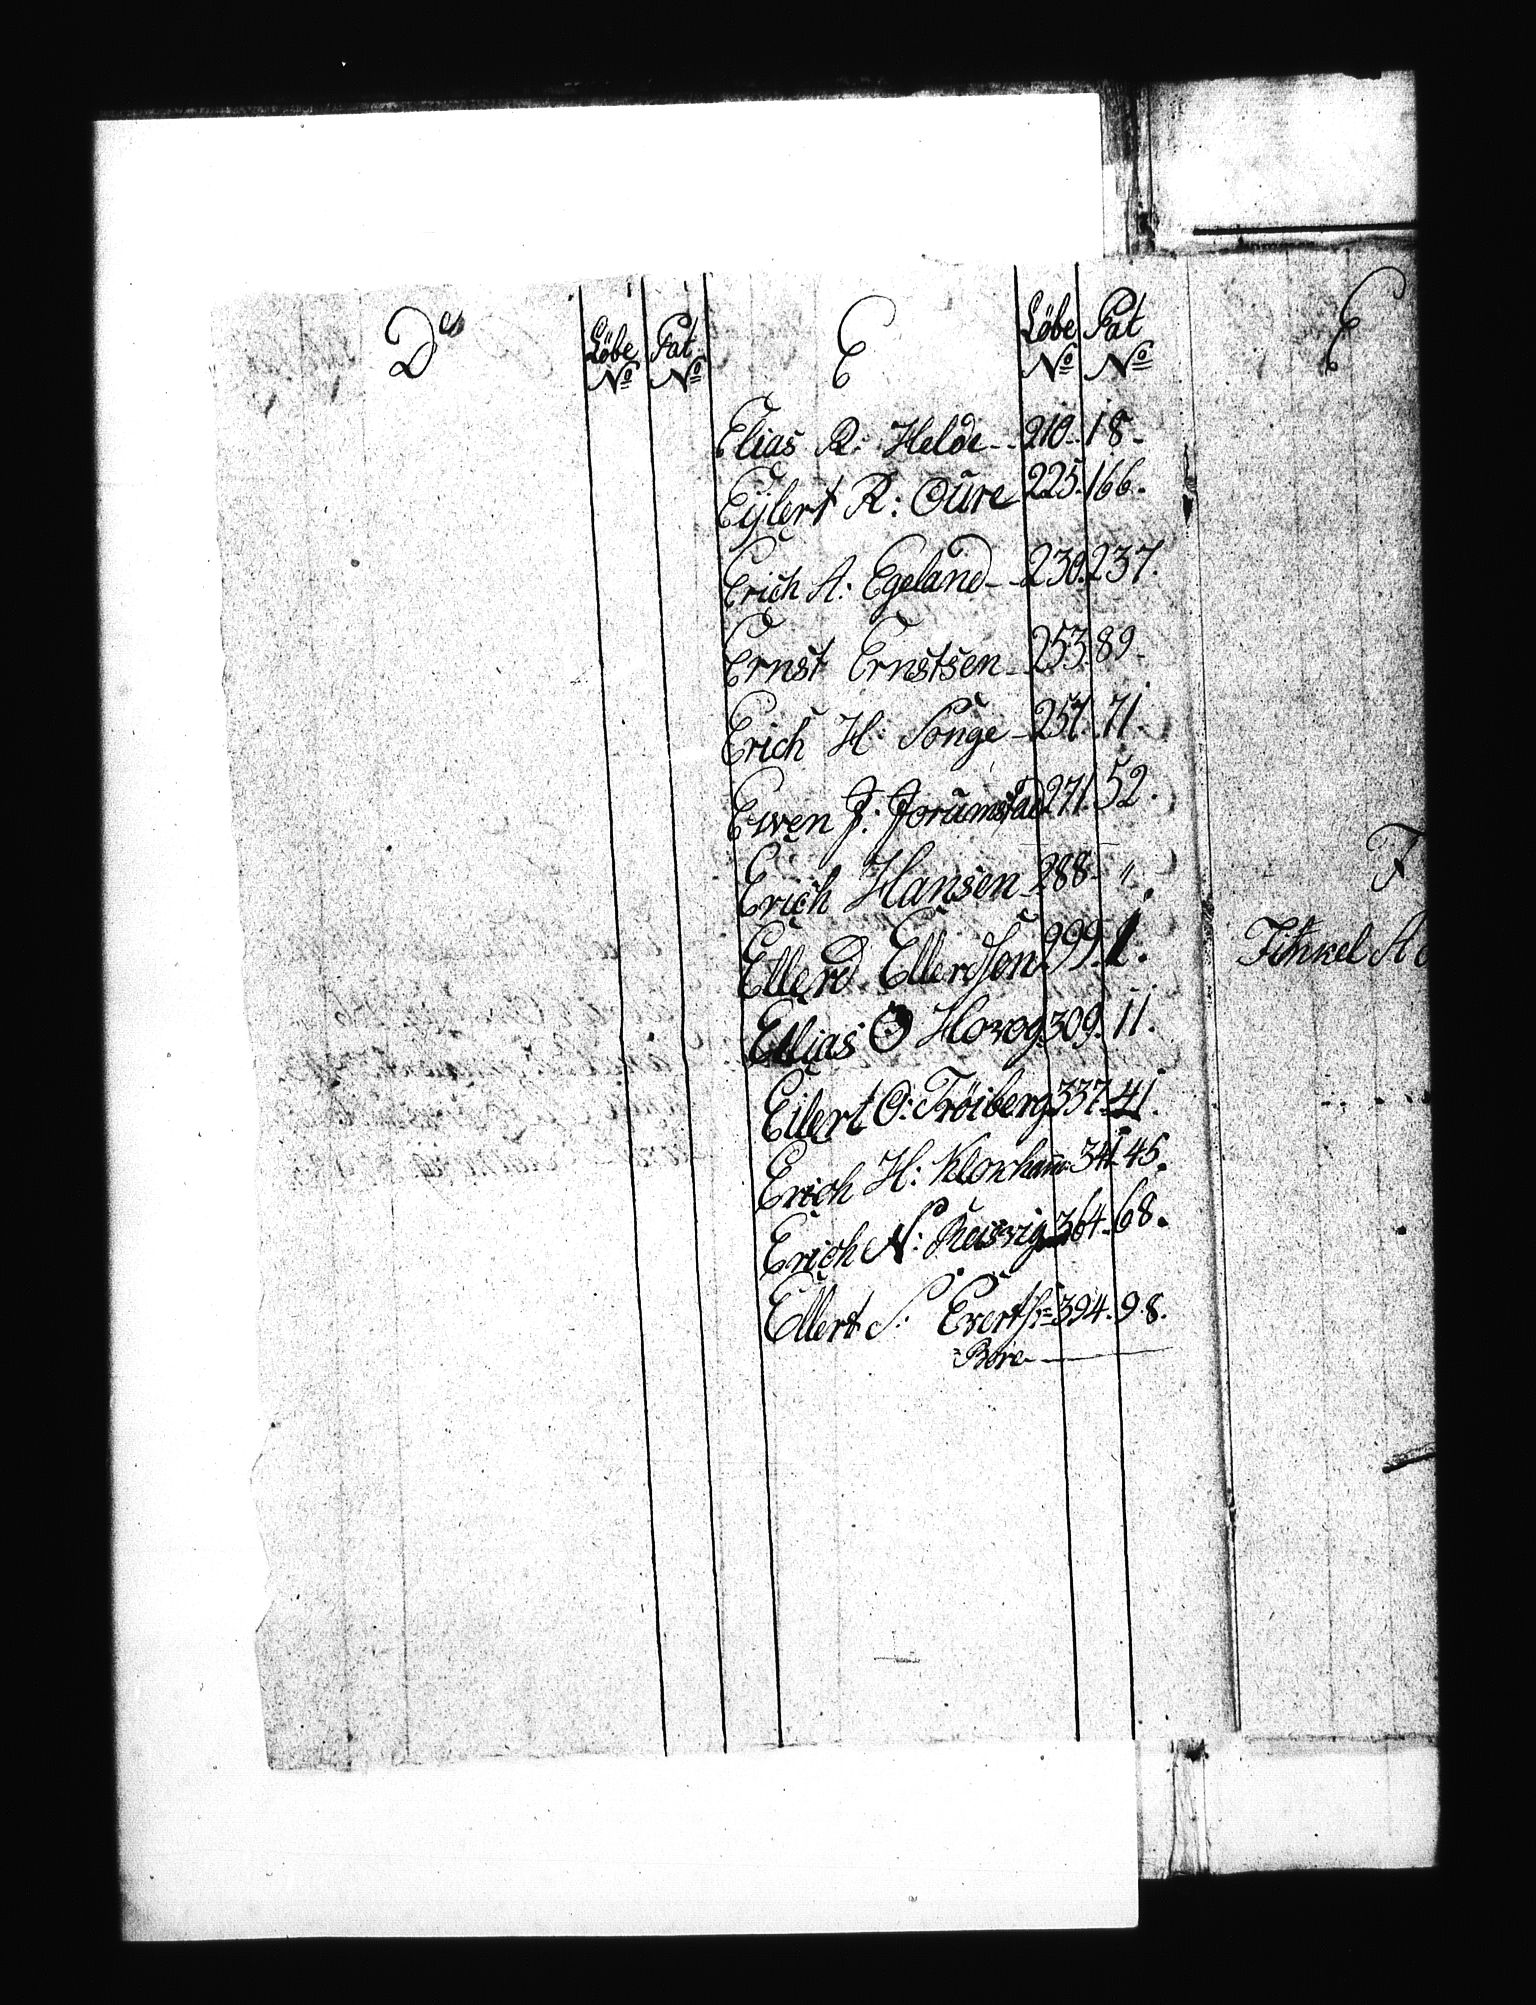 D
Löbe Pat
No No
E
Löbe Pat
No No
Elias R: Helde - 210 - 18 -
Eÿlert R: Oure 225. 166.
Erich A: Egeland - 230. 237.
Ernst Ernstsen - 253. 89 -
Erich H: Songe - 257. 71 -
Ewen J: Jorumstad 271. 52.
Erich Hansen - 288 - " .
Ellerd Ellerdsen 999. 1.
Elias O Hovog 309. 11.
Eilert O: Fröiberg 337. 41.
Erich H: 341. 45.
Erich N: 364. 68.
Ellert S: Evertss= 394. 98.
Bore
E
F